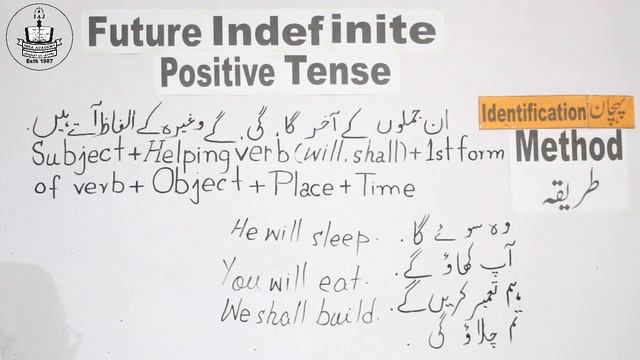 IAJ
Estb 1987
Future Indefinite
Positive Tense
Identification پہچان
ان جملوں کے آخر گا، گی، گے وغیرہ کے الفاظ آتے ہیں۔
Subject + Helping verb (will, shall) + 1st form
of verb + Object + Place + Time
Method
طریقہ
He will sleep. وہ سوئے گا۔
You will eat. آپ کھاؤ گے۔
We shall build. ہم تعمیر کریں گے۔
تم چلاؤ گی